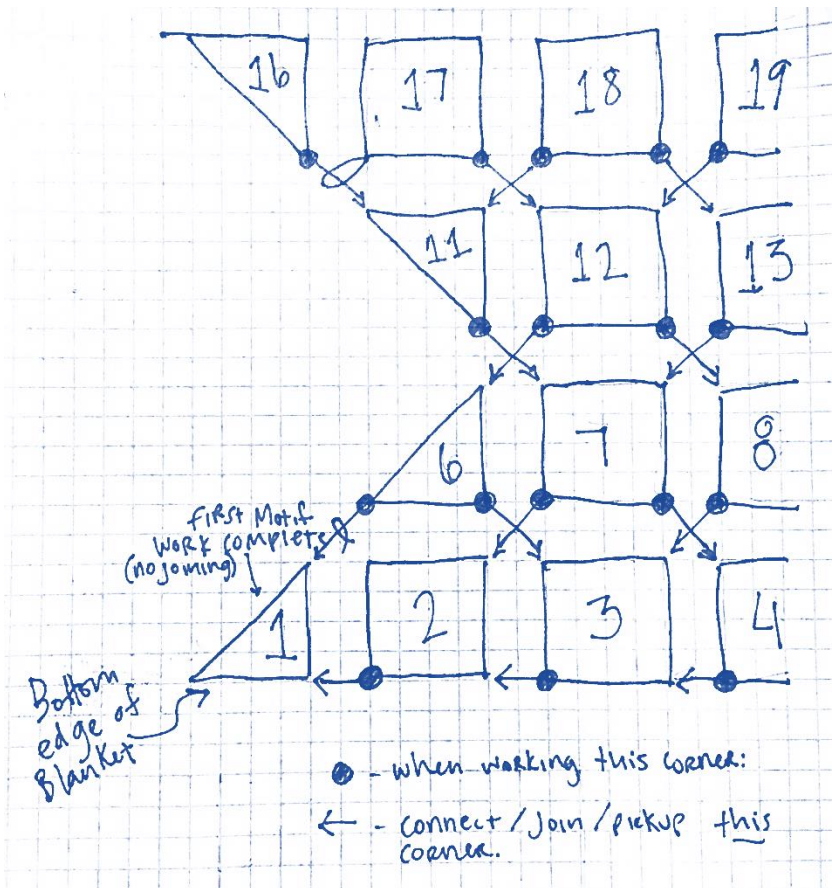 16 17 18 19
11 12 13
6 7 8
First Motif
work complete
(no joining)
1 2 3 4
Bottom
edge of
Blanket
- when working this corner:
← - connect/join/pickup this
corner.